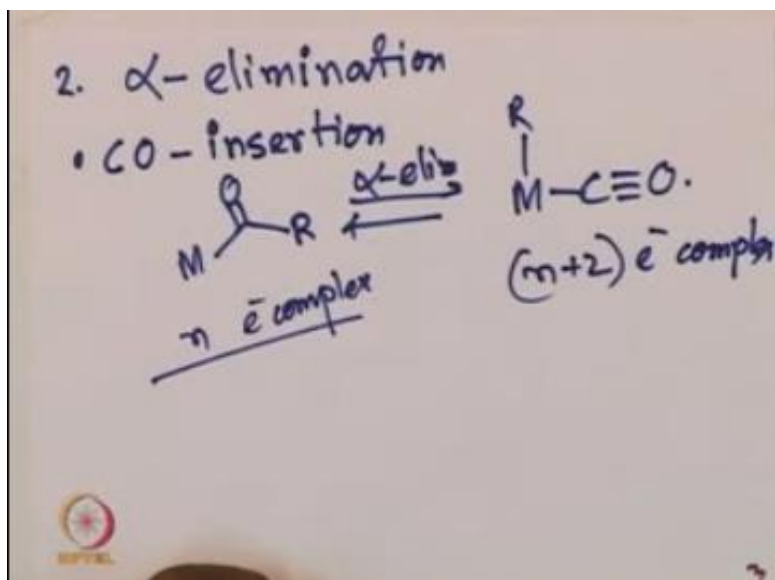 2. α- elimination
• CO - insertion
O
M R
α-elim
R
M-C≡O.
n e⁻ complex
(n+2) e⁻ complex
NPTEL